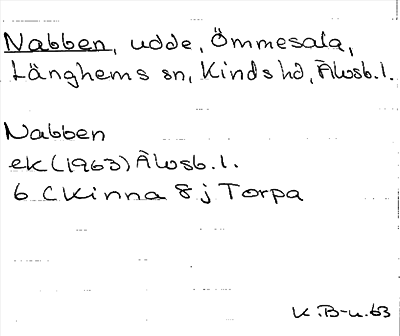 Nabben, udde, Ömmesala,
Länghems sn, Kinds hd, Älvsb. l.
Nabben
ek (1963) Älvsb. l.
6 C Kinna 8 j Torpa
K. B-n. 63